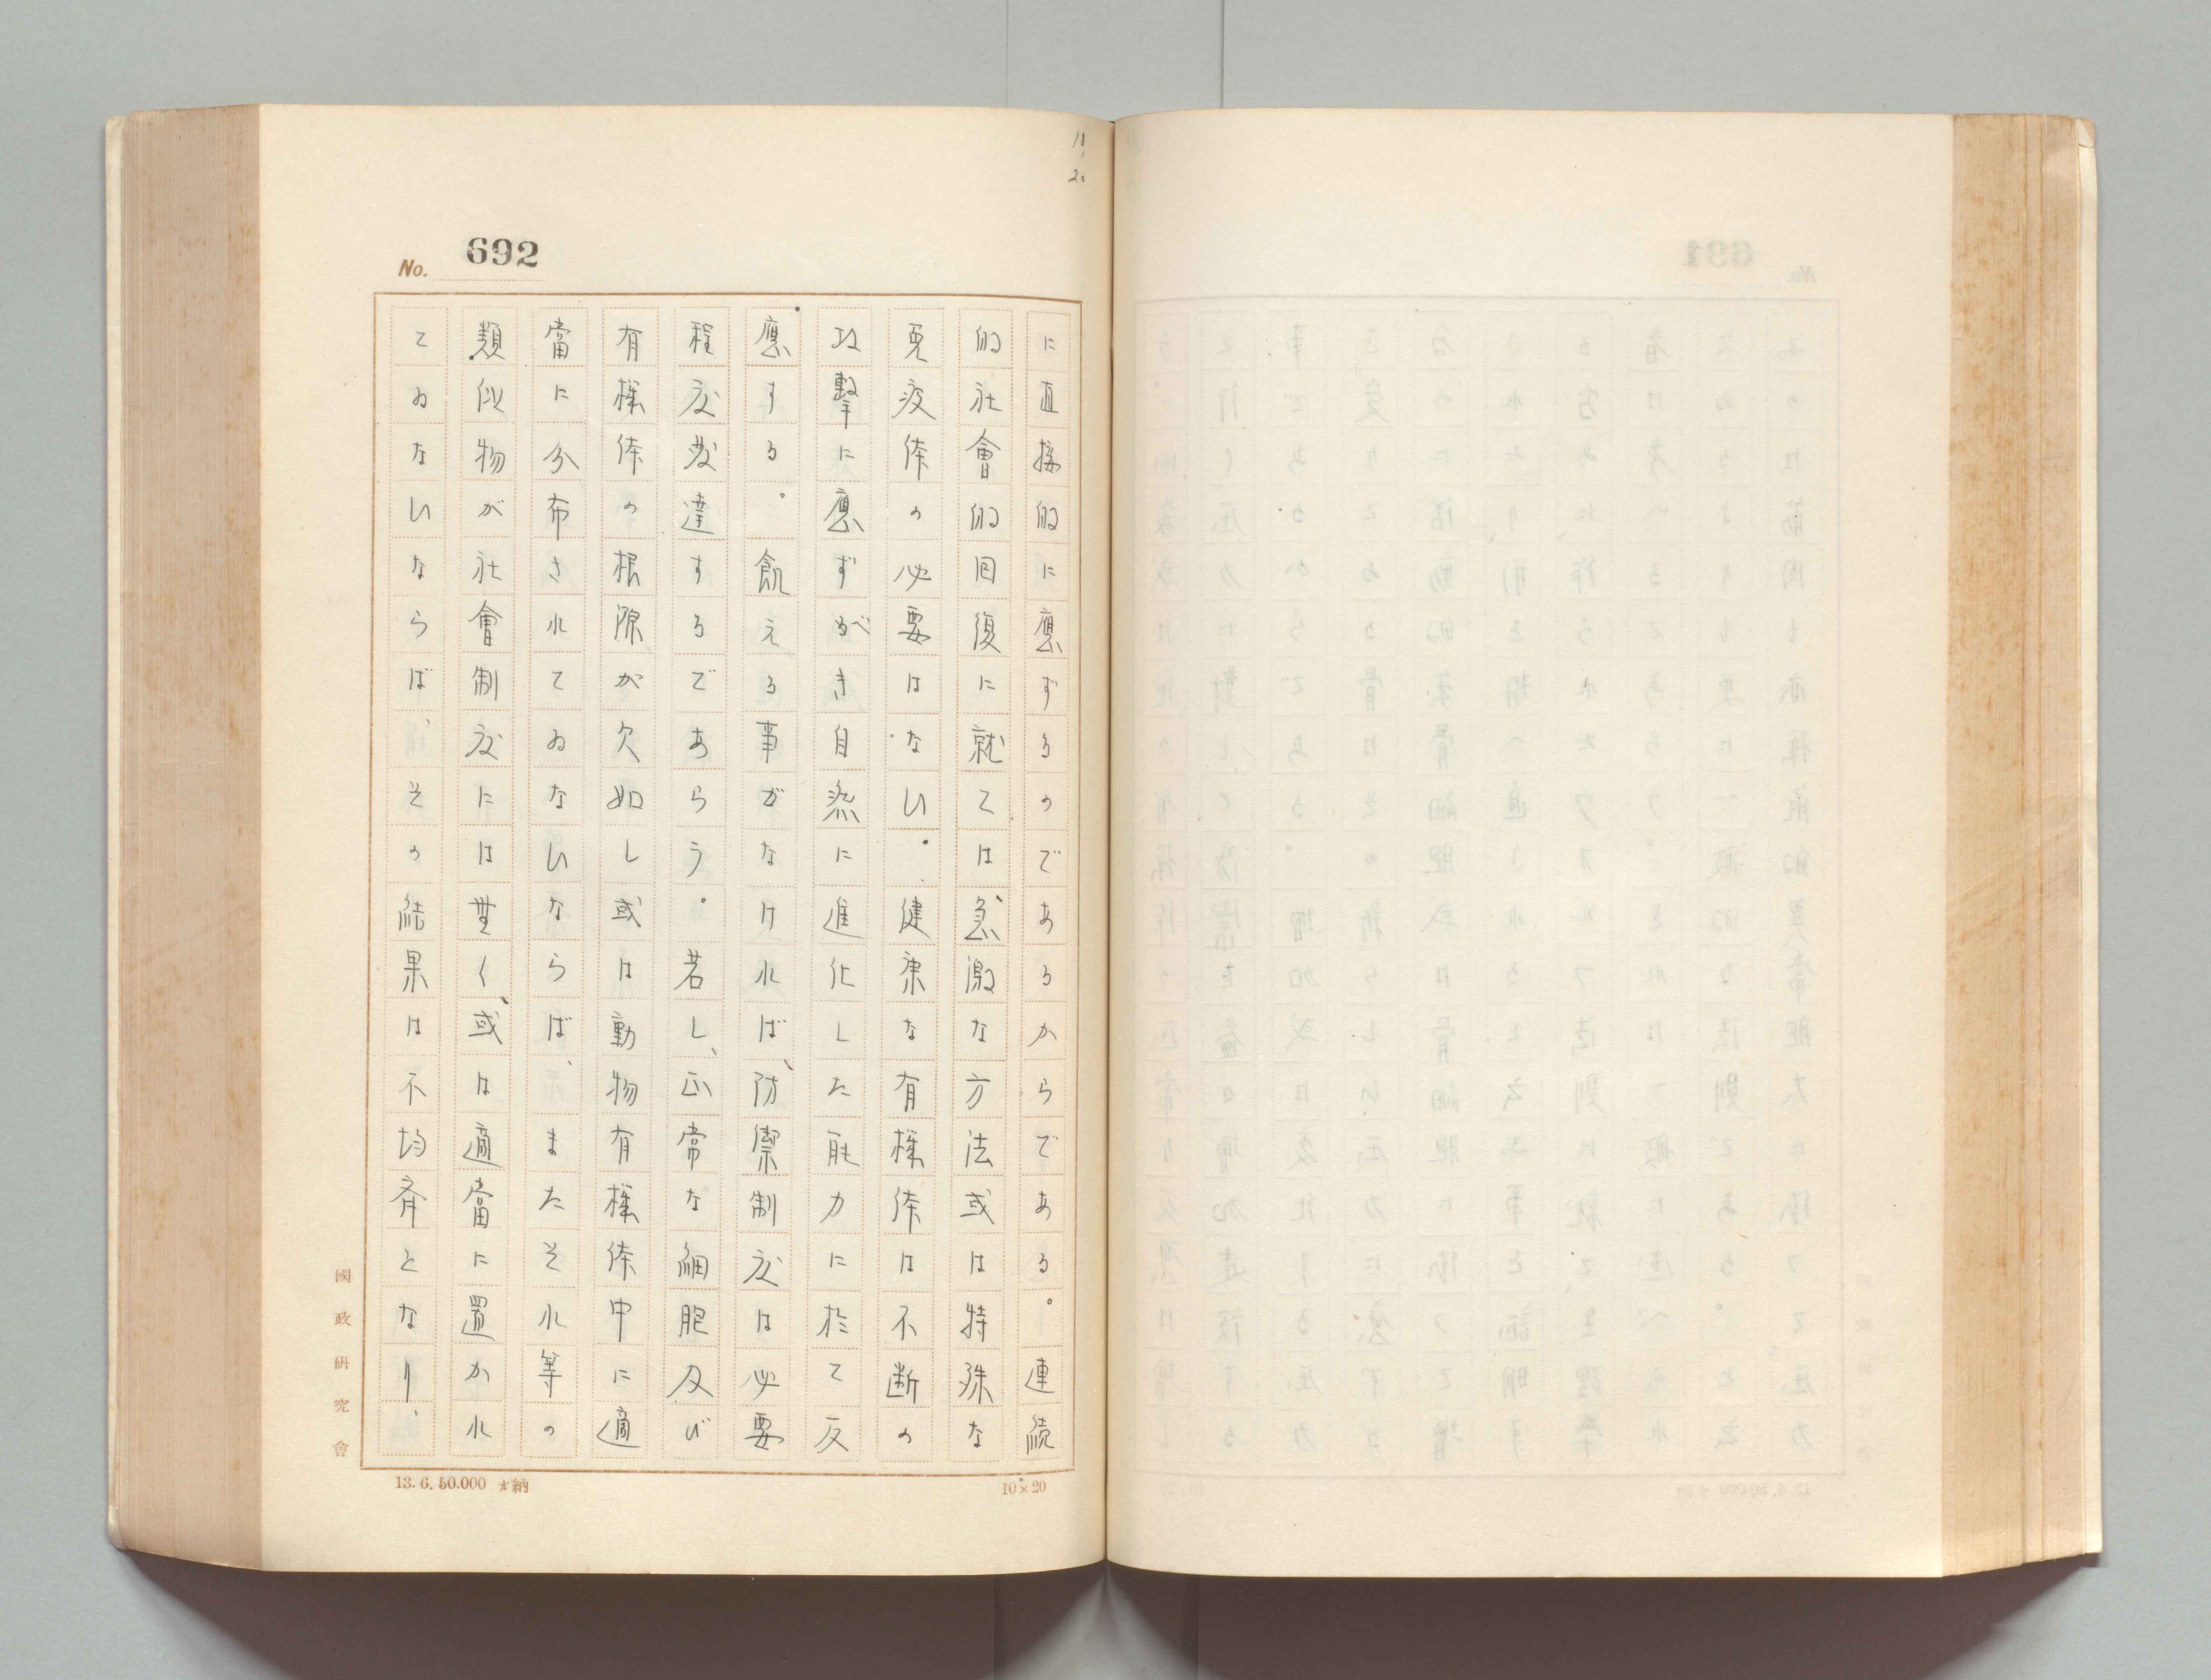 No. 692
に直接的に應ずるのであるからである。連続
的社會的回復に就ては急激な方法或は特殊な
免疫体の必要はない。健康な有機体は不断の
攻撃に應ずべき自然に進化した能力に於て反
應する。飢える事がなければ、防禦制度は必要
程度発達するであらう。若し、正常な細胞及び
有機体の根源が欠如し或は動物有機体中に適
當に分布されてゐないならば、またそれ等の
類似物が社會制度には無く、或は適當に置かれ
てゐないならば、その結果は不均斉となり、
國政研究會
13.6.50.000 納
10×20